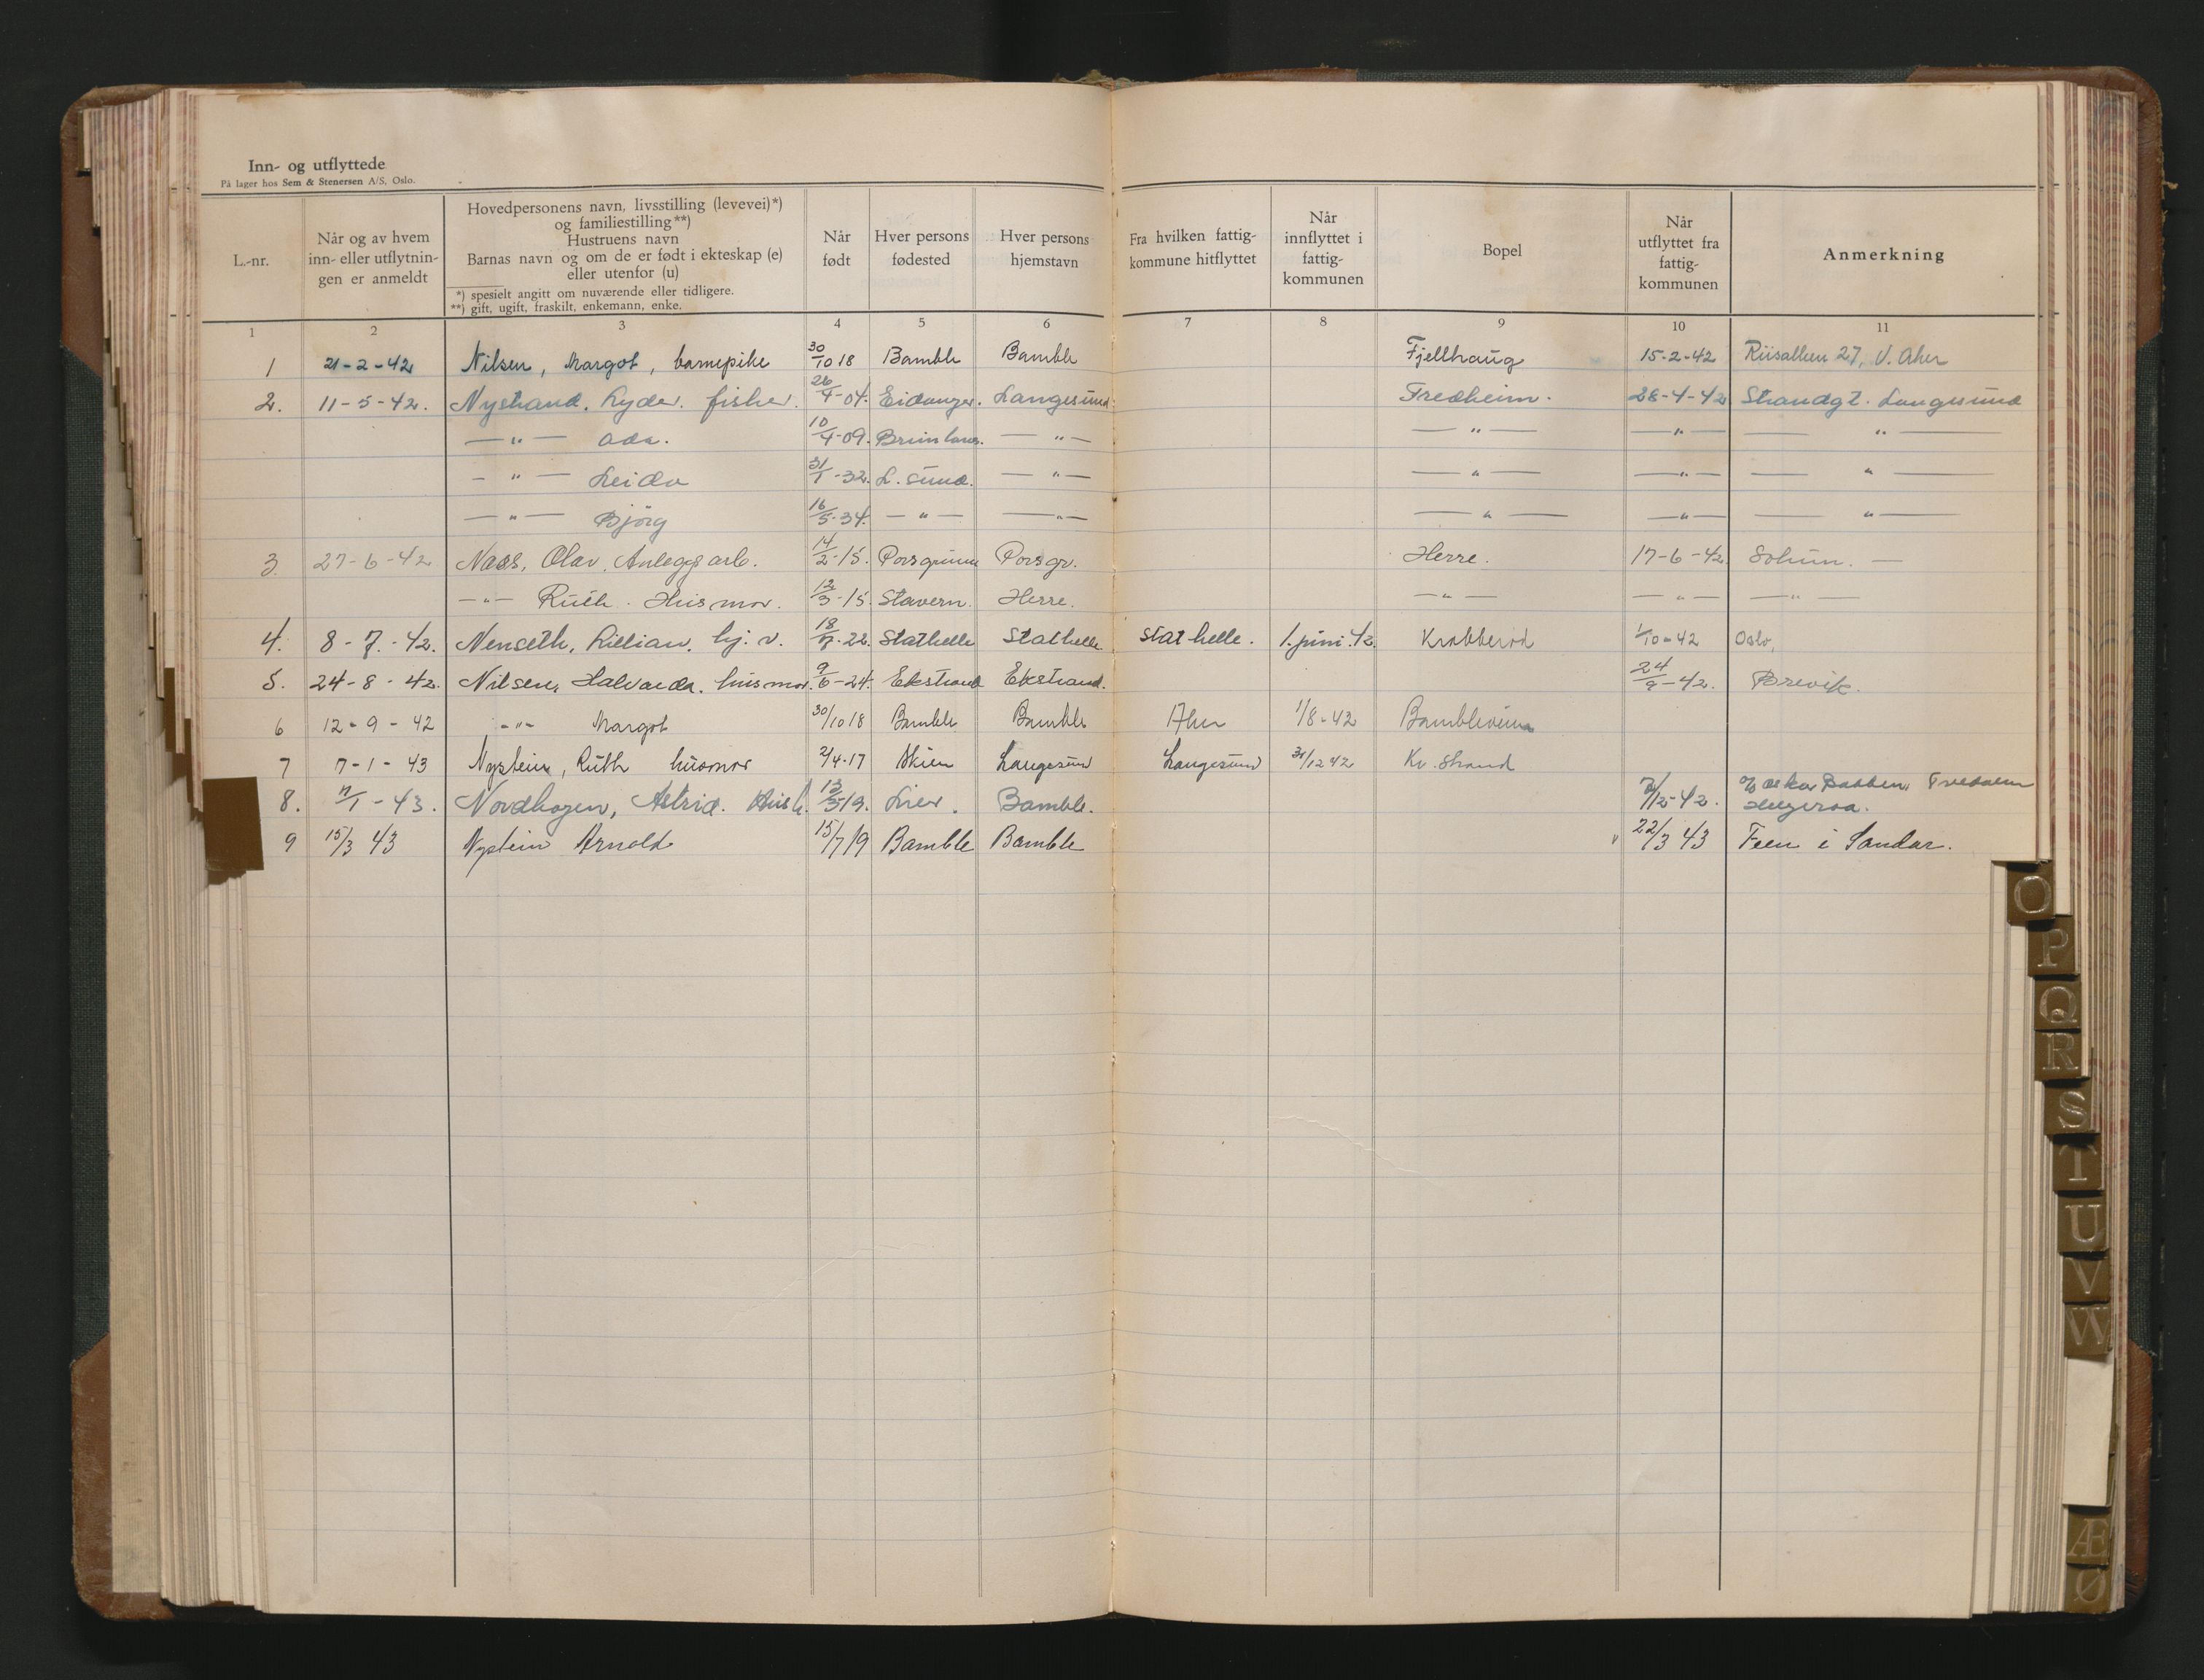 Inn- og utflyttede
På lager hos Sem & Stenersen A/S, Oslo.
L.-nr.
Når og av hvem
inn- eller utflytnin-
gen er anmeldt
Hovedpersonens navn, livsstilling (levevei)*)
og familiestilling**)
Hustruens navn
Barnas navn og om de er født i ekteskap (e)
eller utenfor (u)
*) spesielt angitt om nuværende eller tidligere.
**) gift, ugift, fraskilt, enkemann, enke.
Når
født
Hver persons
fødested
Hver persons
hjemstavn
Fra hvilken fattig-
kommune hitflyttet
Når
innflyttet i
fattig-
kommunen
Bopel
Når
utflyttet fra
fattig-
kommunen
Anmerkning
1 2 3 4 5 6 7 8 9 10 11
1 21-2-42 Nilsen, Margot, barnepike 30/10 18 Bamble Bamble Fjellhaug 15-2-42 Riisalleen 27, V. Aker
2. 11-5-42. Nystrand, Lyder. fisker. 26/4-04. Eidanger. Langesund. Fredheim. 28-4-42 Strandgt. Langesund
—"— Ada. 10/4-09. Brunlanes. —"— —"— —"— —"—
—"— Leida 31/1-32. L. sund. —"— —"— —"— —"—
—"— Björg 16/5-34. —"— —"— —"— —"— —"—
3. 27-6-42 Næss, Olav, Anleggsarb. 14/2-15. Porsgrunn Porsgr. Herre. 17-6-42 Solum. —
—"— Ruth. Husmor. 12/3-15. Stavern. Herre. —"— —"— —"—
4. 8-7-42. Nenseth, Lillian. hj. v. 18/7-22. Stathelle Stathelle. Stathelle. 1. juni. 42. Krabberød 1/10-42 Oslo,
5. 24-8-42. Nilsen, Halvarda. husmor. 9/6-24. Ekstrand Ekstrand. 24/9-42. Brevik.
6 12-9-42 -"- Margot 30/10 18 Bamble Bamble Aker 1/8-42 Bambleveien
7 7-1-43 Nystein, Ruth husmor 2/4-17 Skien Langesund Langesund 31/12 42 Kr. Strand
8. 11/1-43. Nordhagen, Astrid. Hush. 13/3 19. Lier. Bamble. 2/12-42. Fredalen
Helgeroa.
9 15/3 43 Nystein Arnold 15/7 19 Bamble Bamble 22/3 43 Feen i Sandar.
O
P
Q
R
S
T
U
V
W
Æ
Ø